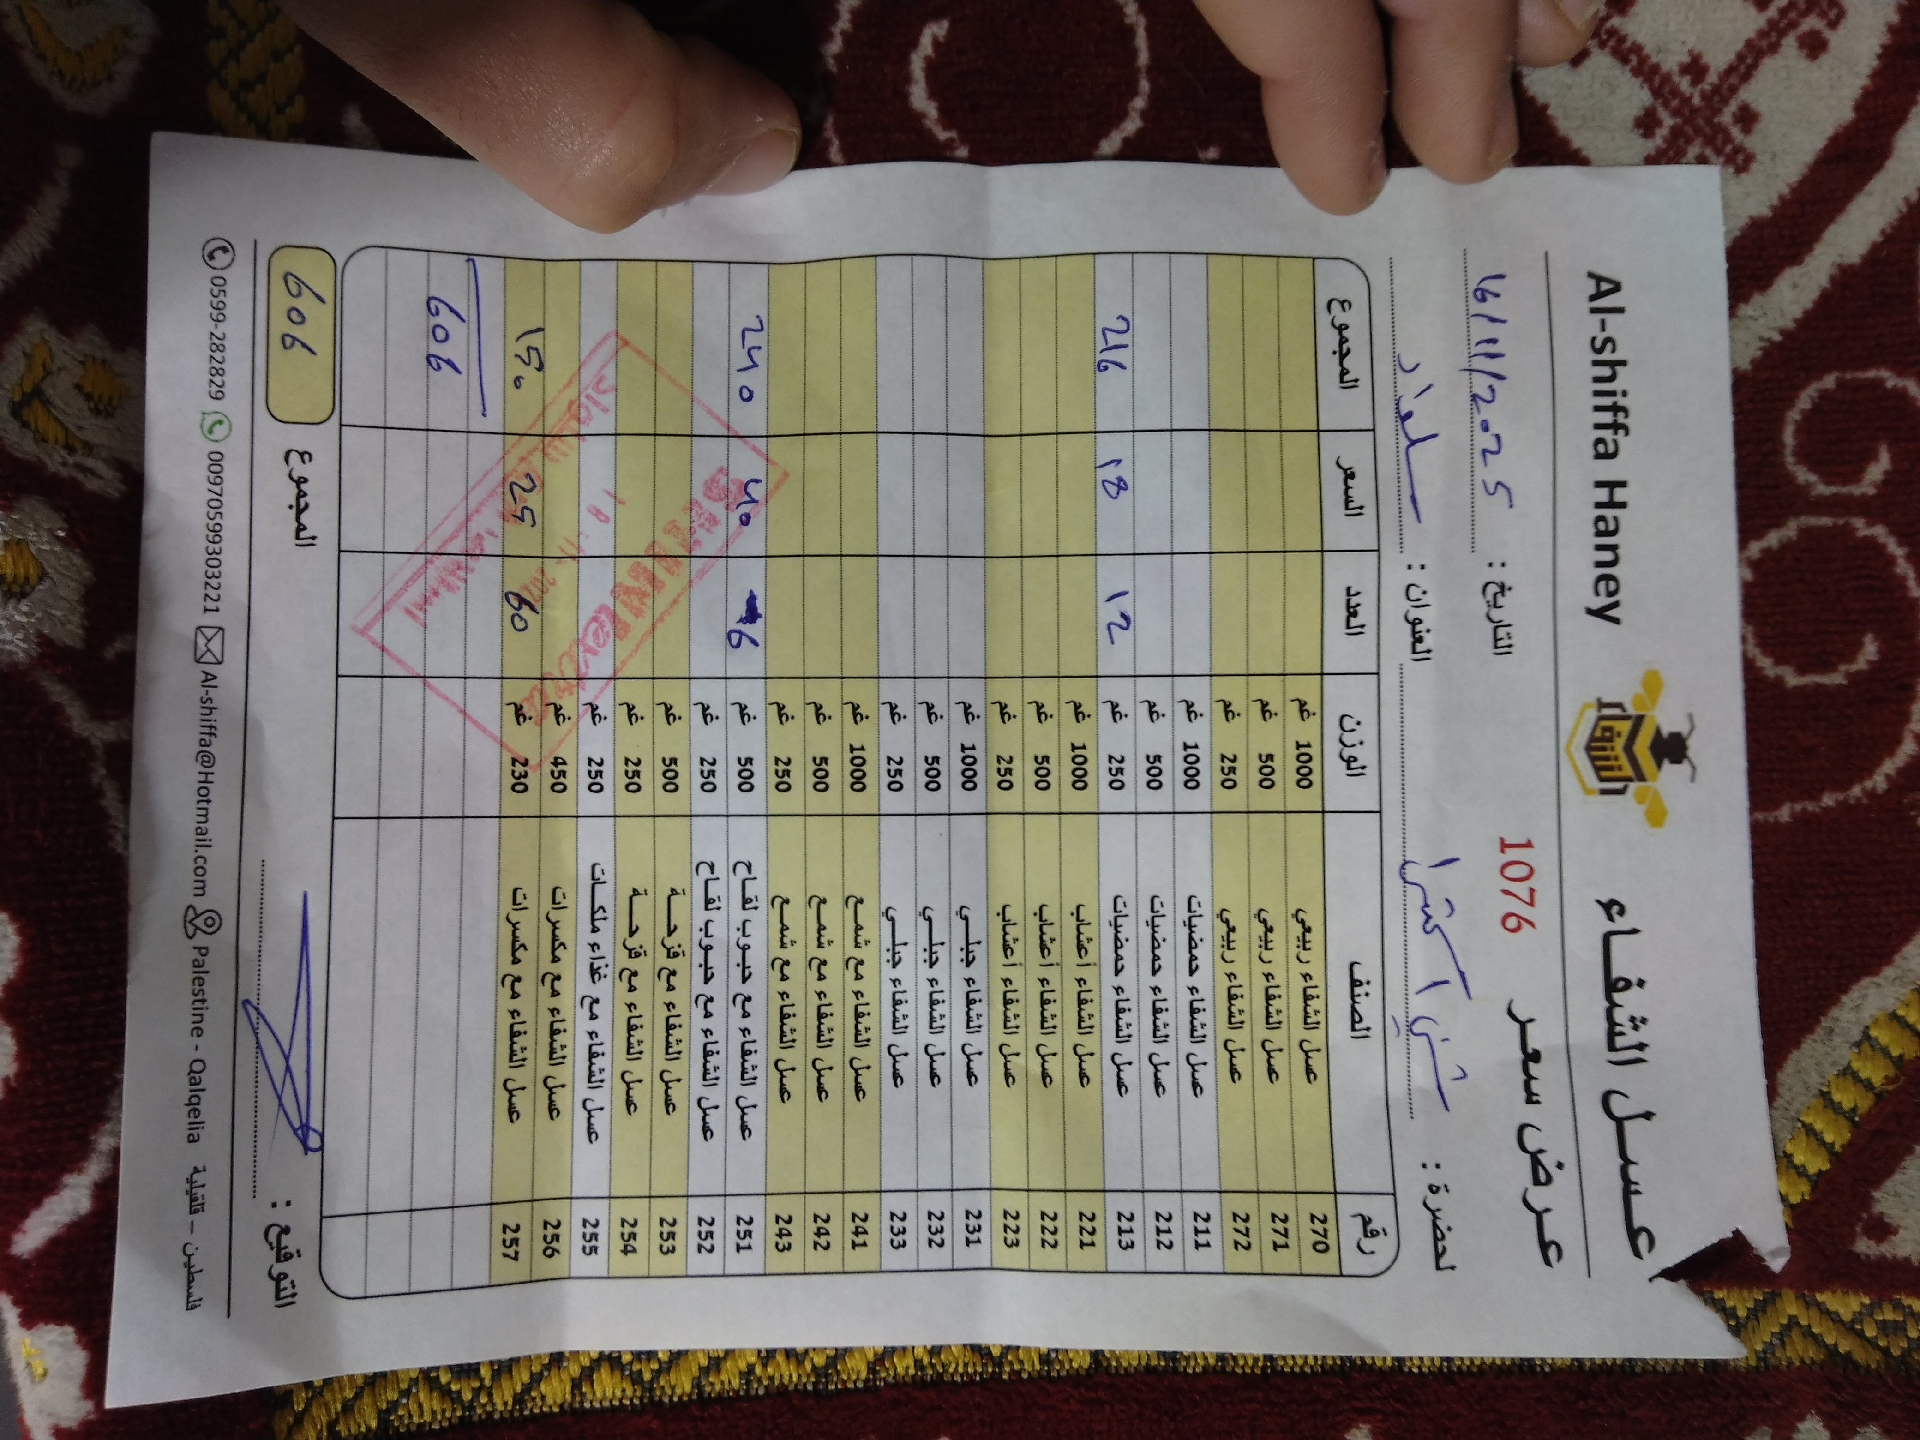 Al-shiffa Haney
عسل الشفاء
الشفاء
عرض سعر
1076
التاريخ : 16/11/2025
لحضرة : شني اكسترا
العنوان : سلواد
رقم الصنف الوزن العدد السعر المجموع
270 عسل الشفاء ربيعي 1000 غم
271 عسل الشفاء ربيعي 500 غم
272 عسل الشفاء ربيعي 250 غم
211 عسل الشفاء حمضيات 1000 غم
212 عسل الشفاء حمضيات 500 غم
213 عسل الشفاء حمضيات 250 غم 12 18 216
221 عسل الشفاء أعشاب 1000 غم
222 عسل الشفاء أعشاب 500 غم
223 عسل الشفاء أعشاب 250 غم
231 عسل الشفاء جبلي 1000 غم
232 عسل الشفاء جبلي 500 غم
233 عسل الشفاء جبلي 250 غم
241 عسل الشفاء مع شمع 1000 غم
242 عسل الشفاء مع شمع 500 غم
243 عسل الشفاء مع شمع 250 غم
251 عسل الشفاء مع حبوب لقاح 500 غم 6 40 240
252 عسل الشفاء مع حبوب لقاح 250 غم
253 عسل الشفاء مع قزحة 500 غم
254 عسل الشفاء مع قزحة 250 غم
255 عسل الشفاء مع غذاء ملكات 250 غم
256 عسل الشفاء مع مكسرات 450 غم
257 عسل الشفاء مع مكسرات 230 غم 60 25 150
606
المجموع 606
التوقيع :
0599-282829 00970599303221 Al-shiffa@Hotmail.com Palestine - Qalqelia فلسطين – قلقيلية